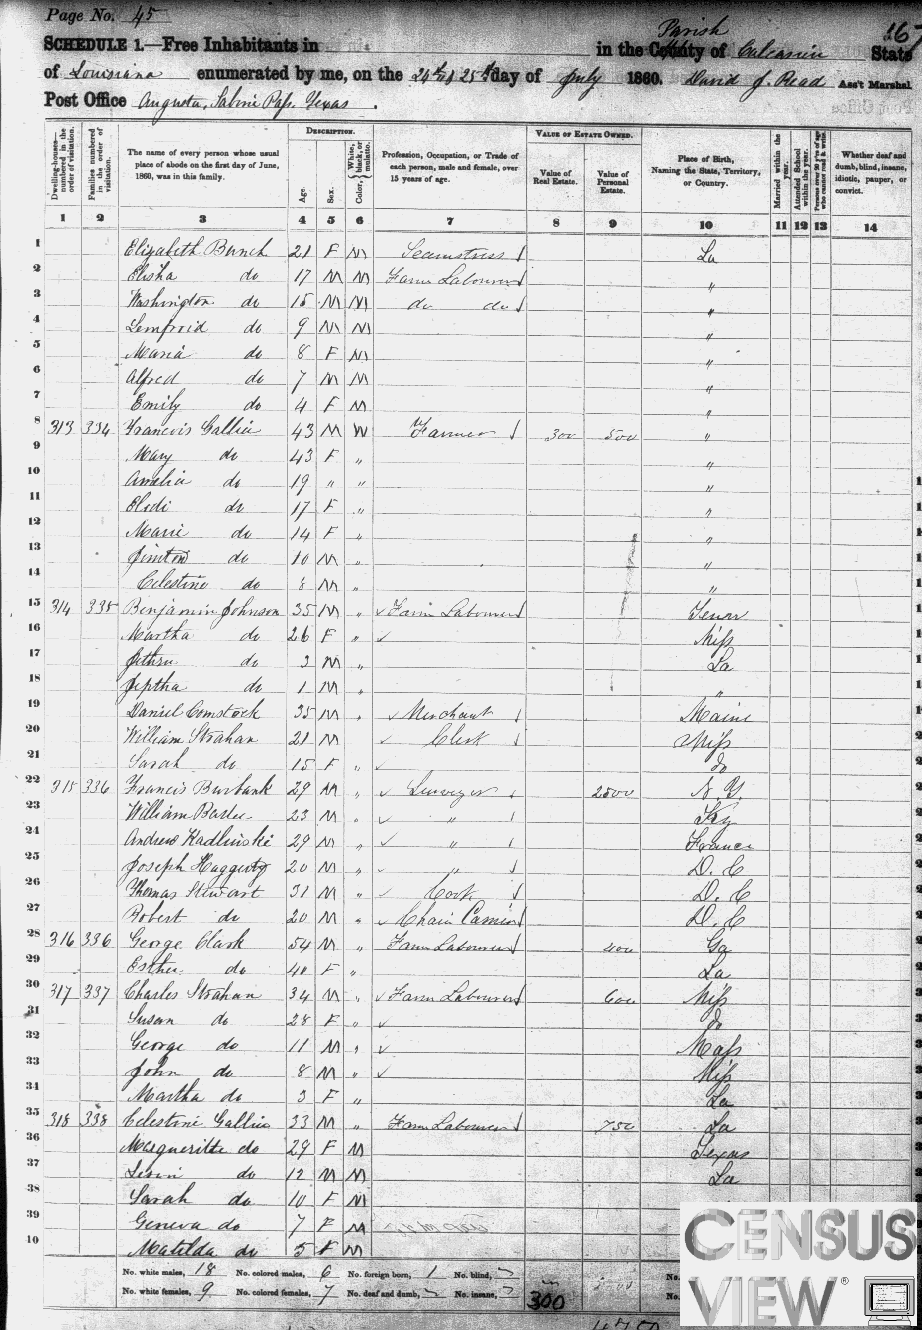 Page No. 45
167
SCHEDULE 1.—Free Inhabitants in in the County Parish of Calcasieu State
of Louisiana enumerated by me, on the 24th & 25th day of July 1860. David J. Read Ass't Marshal
Post Office Augusta, Sabine Pass, Texas.
Dwelling-houses—numbered in the order of visitation. Families numbered in the order of visitation. The name of every person whose usual place of abode on the first day of June, 1860, was in this family. DESCRIPTION. Age. Sex. Color, White, black, or mulatto. Profession, Occupation, or Trade of each person, male and female, over 15 years of age. VALUE OF ESTATE OWNED. Value of Real Estate. Value of Personal Estate. Place of Birth, Naming the State, Territory, or Country. Married within the year. Attended School within the year. Persons over 20 y'rs of age who cannot read & write. Whether deaf and dumb, blind, insane, idiotic, pauper, or convict.
1 2 3 4 5 6 7 8 9 10 11 12 13 14
1 Elizabeth Bunch 21 F M Seamstress La
2 Elisha do 17 M M Farm Labourer "
3 Washington do 15 M M do do "
4 do 9 M M "
5 Maria do 8 F M "
6 Alfred do 7 M M "
7 Emily do 4 F M "
8 313 334 Francois Gallier 43 M W Farmer 300 500 "
9 Mary do 43 F " "
10 Amelia do 19 " " "
11 Elodi do 17 F " "
12 Marie do 14 F " "
13 do 10 M " "
14 Celestine do 8 M " "
15 314 335 Benjamin Johnson 35 M " Farm Labourer Tenn
16 Martha do 26 F " Miss
17 Jethru do 3 M " La
18 Jeptha do 1 M " "
19 Daniel Comstock 35 M " Merchant Maine
20 William Strahan 21 M " Clerk Miss
21 Sarah do 15 F " do
22 315 336 Francis Burbank 29 M " Surveyor 2500 N. Y.
23 William 23 M " " Ky
24 Andrew Kadlinski 29 M " " France
25 Joseph Haggerty 20 M " " D. C
26 Thomas Stewart 31 M " Cook D. C
27 Robert do 20 M " Chain Carrier D. C
28 316 336 George Clark 54 M " Farm Labourer 400 Ga
29 Esther do 40 F " La
30 317 337 Charles Strahan 34 M " Farm Labourer 600 Miss
31 Susan do 28 F " do
32 George do 11 M " Mass
33 John do 8 M " Miss
34 Martha do 3 F " La
35 318 338 Celestine Gallier 33 M " Farm Labourer 750 La
36 Marguerite do 29 F M Texas
37 do 12 M M La
38 Sarah do 10 F M
39 Geneva do 7 F M
40 Matilda do 5 F M
No. white males, 18 No. colored males, 6 No. foreign born, 1 No. blind, No.
No. white females, 9 No. colored females, 7 No. deaf and dumb, No. insane, 300 No.
4750
CENSUS
VIEW®